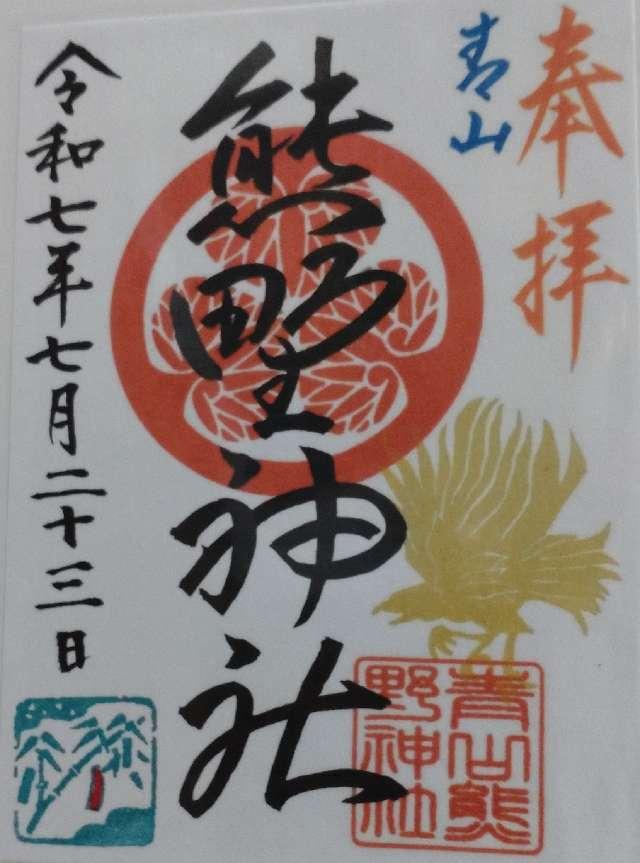 奉拝
青山
熊野神社
青山熊
野神社
令和七年七月二十三日